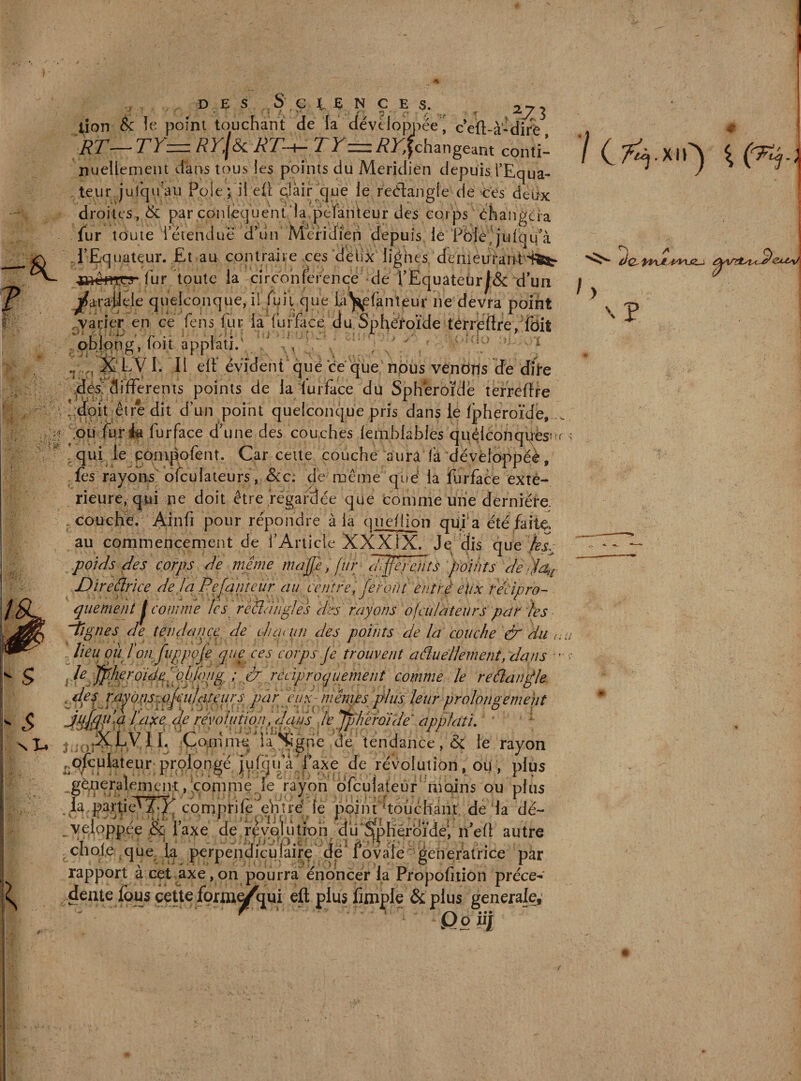 DES SCIENCES. 273
tion & le point touchant de la développée, c'est-à-dire,
RT—TY=RY, & RT+TY=RY, changeant conti-
nuellement dans tous les points du Meridien depuis l'Equa-
teur jusqu'au Pole; il est clair que le rectangle de ces deux
droites, & par consequent la pesanteur des corps changera
sur toute l'étenduë d'un Meridien depuis le Pole jusqu'à
l'Equateur. Et au contraire ces deux lignes demeurant les
mêmes sur toute la circonference de l'Equateur, & d'un
parallele quelconque, il suit que la Pesanteur ne devra point
varier en ce sens sur la surface du Spheroïde terrestre, soit
oblong, soit applati.
XLVI. Il est évident que ce que nous venons de dire
des differents points de la surface du Spheroïde terrestre
doit être dit d'un point quelconque pris dans le spheroïde,
ou sur la surface d'une des couches semblables quelconques
qui le composent. Car cette couche aura sa développée,
ses rayons osculateurs, &c. de même que la surface exté-
rieure, qui ne doit être regardée que comme une derniére
couche. Ainsi pour répondre à la question qui a été faite
au commencement de l'Article XXXIX. Je dis que les
poids des corps de même masse, sur differents points de la
Directrice de la Pesanteur au centre, seront entre eux récipro-
quement comme les rectangles des rayons osculateurs par les
lignes de tendance de chacun des points de la couche & du
lieu où l'on suppose que ces corps se trouvent actuellement, dans
le spheroïde oblong; & réciproquement comme le rectangle
des rayons osculateurs par eux-mêmes plus leur prolongement
jusqu'à l'axe de révolution, dans le spheroïde applati.
XLVII. Comme la ligne de tendance, & le rayon
osculateur prolongé jusqu'à l'axe de révolution, ou, plus
généralement, comme le rayon osculateur moins ou plus
la partie TY comprise entre le point touchant de la dé-
veloppée & l'axe de révolution du Spheroïde, n'est autre
chose que la perpendiculaire de l'ovale generatrice par
rapport à cet axe, on pourra énoncer la Proposition préce-
dente sous cette forme, qui est plus simple & plus generale,
Oo iij
/ (Fig. XII) (Fig.
de même
P
&
P
/&
S
S
L